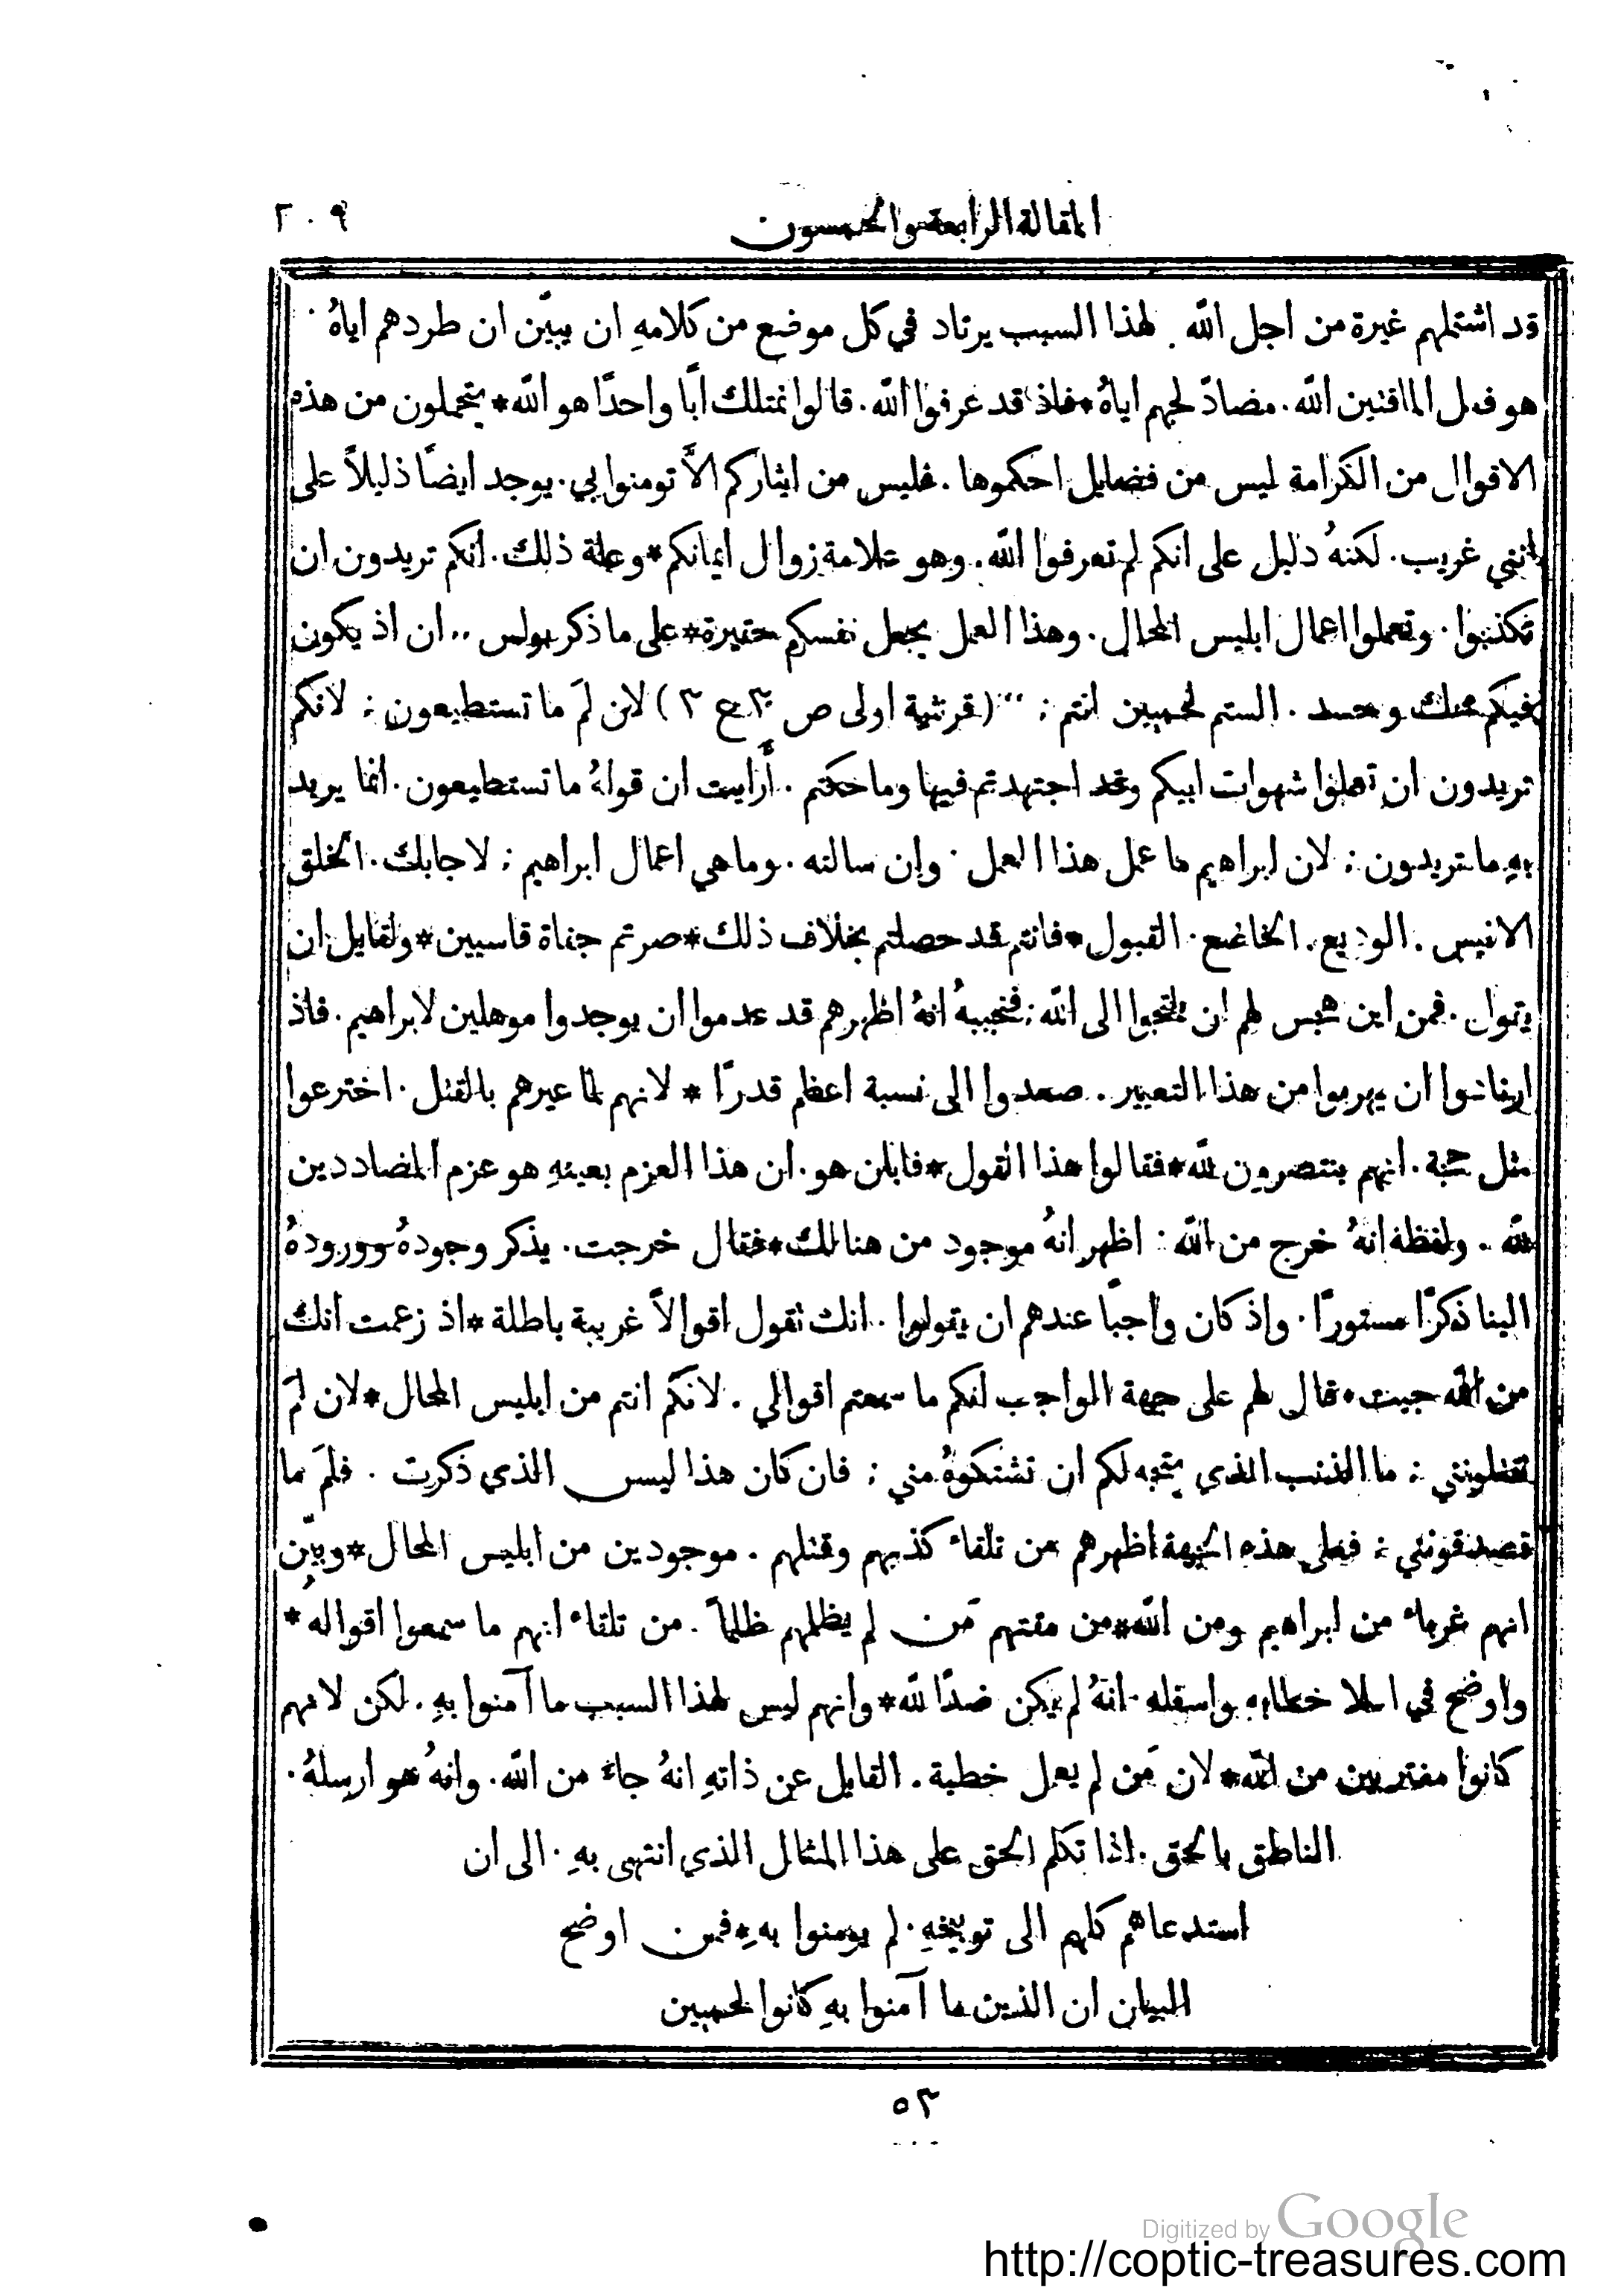 المقالة الرابعة والخمسون
٢٠٩
قد اشتملهم غيرة من اجل الله. لهذا السبب يرتاد في كل موضع من كلامهِ ان يبيّن ان طردهم اياهُ.
هو فعل الماقتين الله. مضادّ لحبهم اياهُ*فاذ قد عرفوا الله. قالوا نمتلك ابًا واحدًا هو الله*يتحملون من هذه
الاقوال من الكرامة ليس من فضايل احكموها. فليس من ايثاركم الاَّ تومنوا بي. يوجد ايضًا دليلاً على
انني غريب. لكنهُ دليل على انكم لم تعرفوا الله. وهو علامة زوال ايمانكم*وعلة ذلك. انكم تريدون ان
تكذبوا. وتعملوا اعمال ابليس المحال. وهذا العمل يجعل نفسكم حقيرة*على ما ذكر بولس ,, ان اذ يكون
فيكم محك وحسد. الستم لحميين انتم؛ “ (قرنثية اولى ص ٣ ع ٣) لان لمَ ما تستطيعون؛ لانكم
تريدون ان تعملوا شهوات ابيكم وقد اجتهدتم فيها وماحكتم. أرايت ان قولهُ ما تستطيعون. انما يريد
بهِ ما تريدون؛ لان ابراهيم ما عمل هذا العمل. وان سالته. وما هي اعمال ابراهيم؛ لاجابك. الخلق
الانيس. الوديع. الخاضع. القبول*فانتم قد حصلتم بخلاف ذلك*صرتم جفاة قاسيين*ولقايل ان
يقول. فمن اين هجس لهم ان يلتجوا الى الله؛ فنجيبهُ انهُ اظهرهم قد عدموا ان يوجدوا موهلين لابراهيم. فاذ
ارتاتوا ان يهربوا من هذا التعيير. صعدوا الى نسبة اعظم قدرًا * لانهم لما عيرهم بالقتل. اخترعوا
مثل حجة. انهم ينتصرون لله*فقالوا هذا القول*فابان هو. ان هذا العزم بعينهِ هو عزم المضاددين
لله. ولفظة انهُ خرج من الله: اظهر انهُ موجود من هنالك*فقال خرجت. يذكر وجودهُ وورودهُ
الينا ذكرًا مستورًا. واذ كان واجبًا عندهم ان يقولوا. انك تقول اقوالاً غريبة باطلة*اذ زعمت انك
من الله جيت*قال لهم على جهة الواجب انكم ما سمعتم اقوالي. لانكم انتم من ابليس المحال*لان لمَ
تقتلونني؛ ما الذنب الذي يتجه لكم ان تشتكوهُ مني؛ فان كان هذا ليس الذي ذكرت. فلمَ ما
تصدقونني؛ فعلى هذه الجهة اظهرهم من تلقاء كذبهم وقتلهم. موجودين من ابليس المحال*وبيّن
انهم غرباء من ابراهيم ومن الله*من مقتهم مَن لم يظلمهم ظلمًا. من تلقاء انهم ما سمعوا اقوالهُ*
واوضح في اعلا خطابه واسفله. انهُ لم يكن ضدًا لله*وانهم ليس لهذا السبب ما آمنوا بهِ. لكن لانهم
كانوا مغتربين من الله*لان مَن لم يعمل خطية. القايل عن ذاتهِ انهُ جاء من الله. وانهُ هو ارسلهُ.
الناطق بالحق. اذا تكلم الحق على هذا المثال الذي انتهى بهِ. الى ان
استدعاهم كلهم الى توبيخهِ. لم يومنوا بهِ*فمن اوضح
البيان ان الذين ما آمنوا بهِ كانوا لحميين
٥٣
Digitized by Google
http://coptic-treasures.com